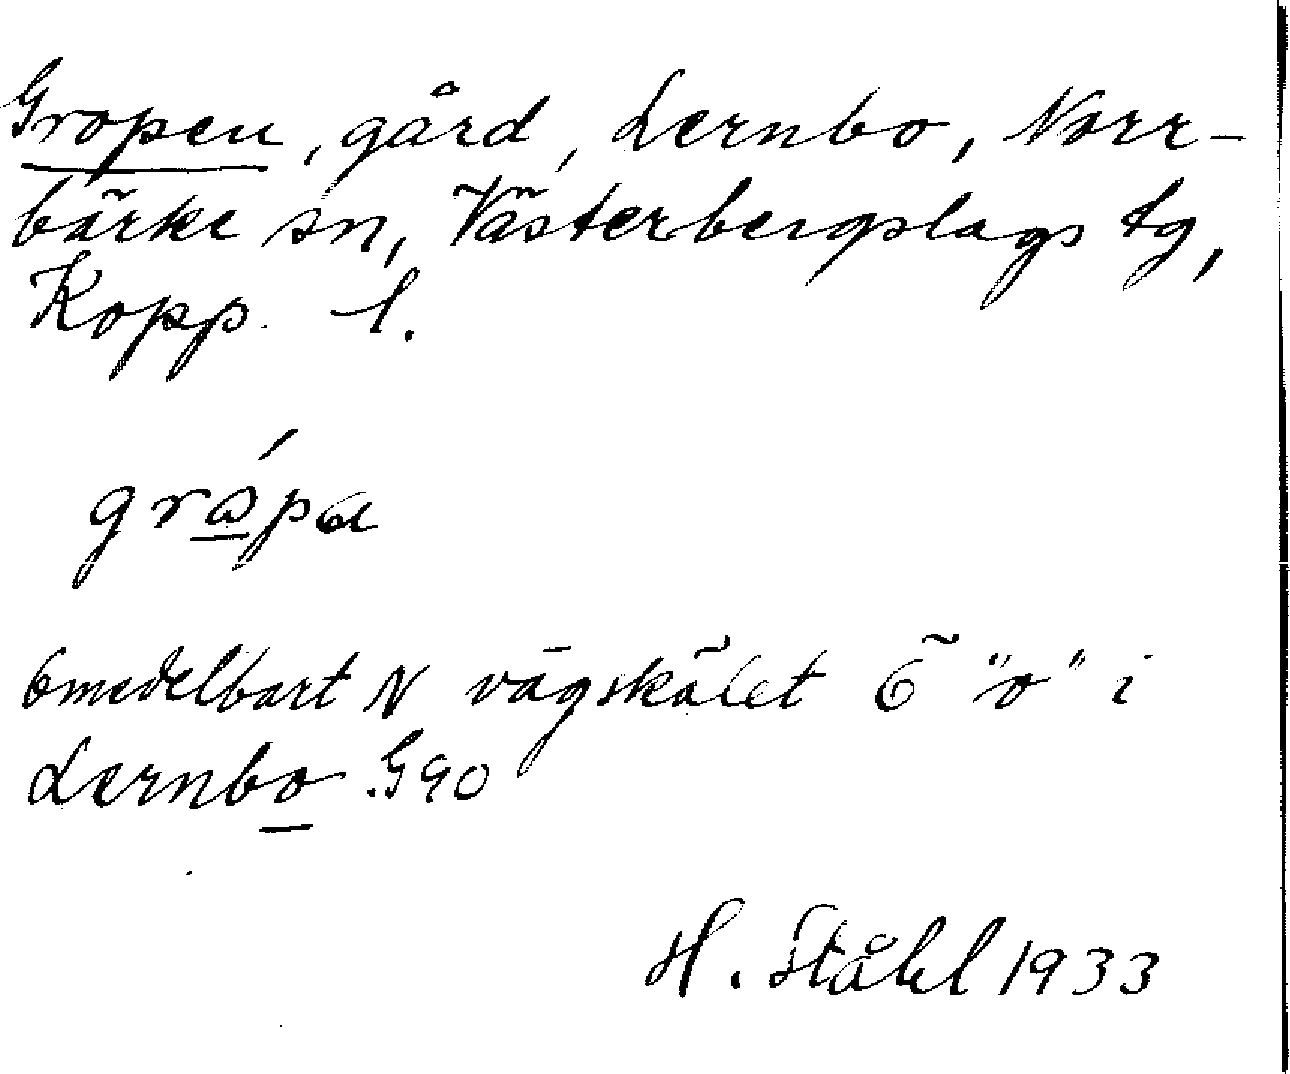 Gropen, gård, Lernbo, Norr-
bärke sn, Västerbergslags tg,
Kopp. l.
grópa
omedelbart N vägskälet Ö "o" i
Lernbo G90
H. Ståhl 1933